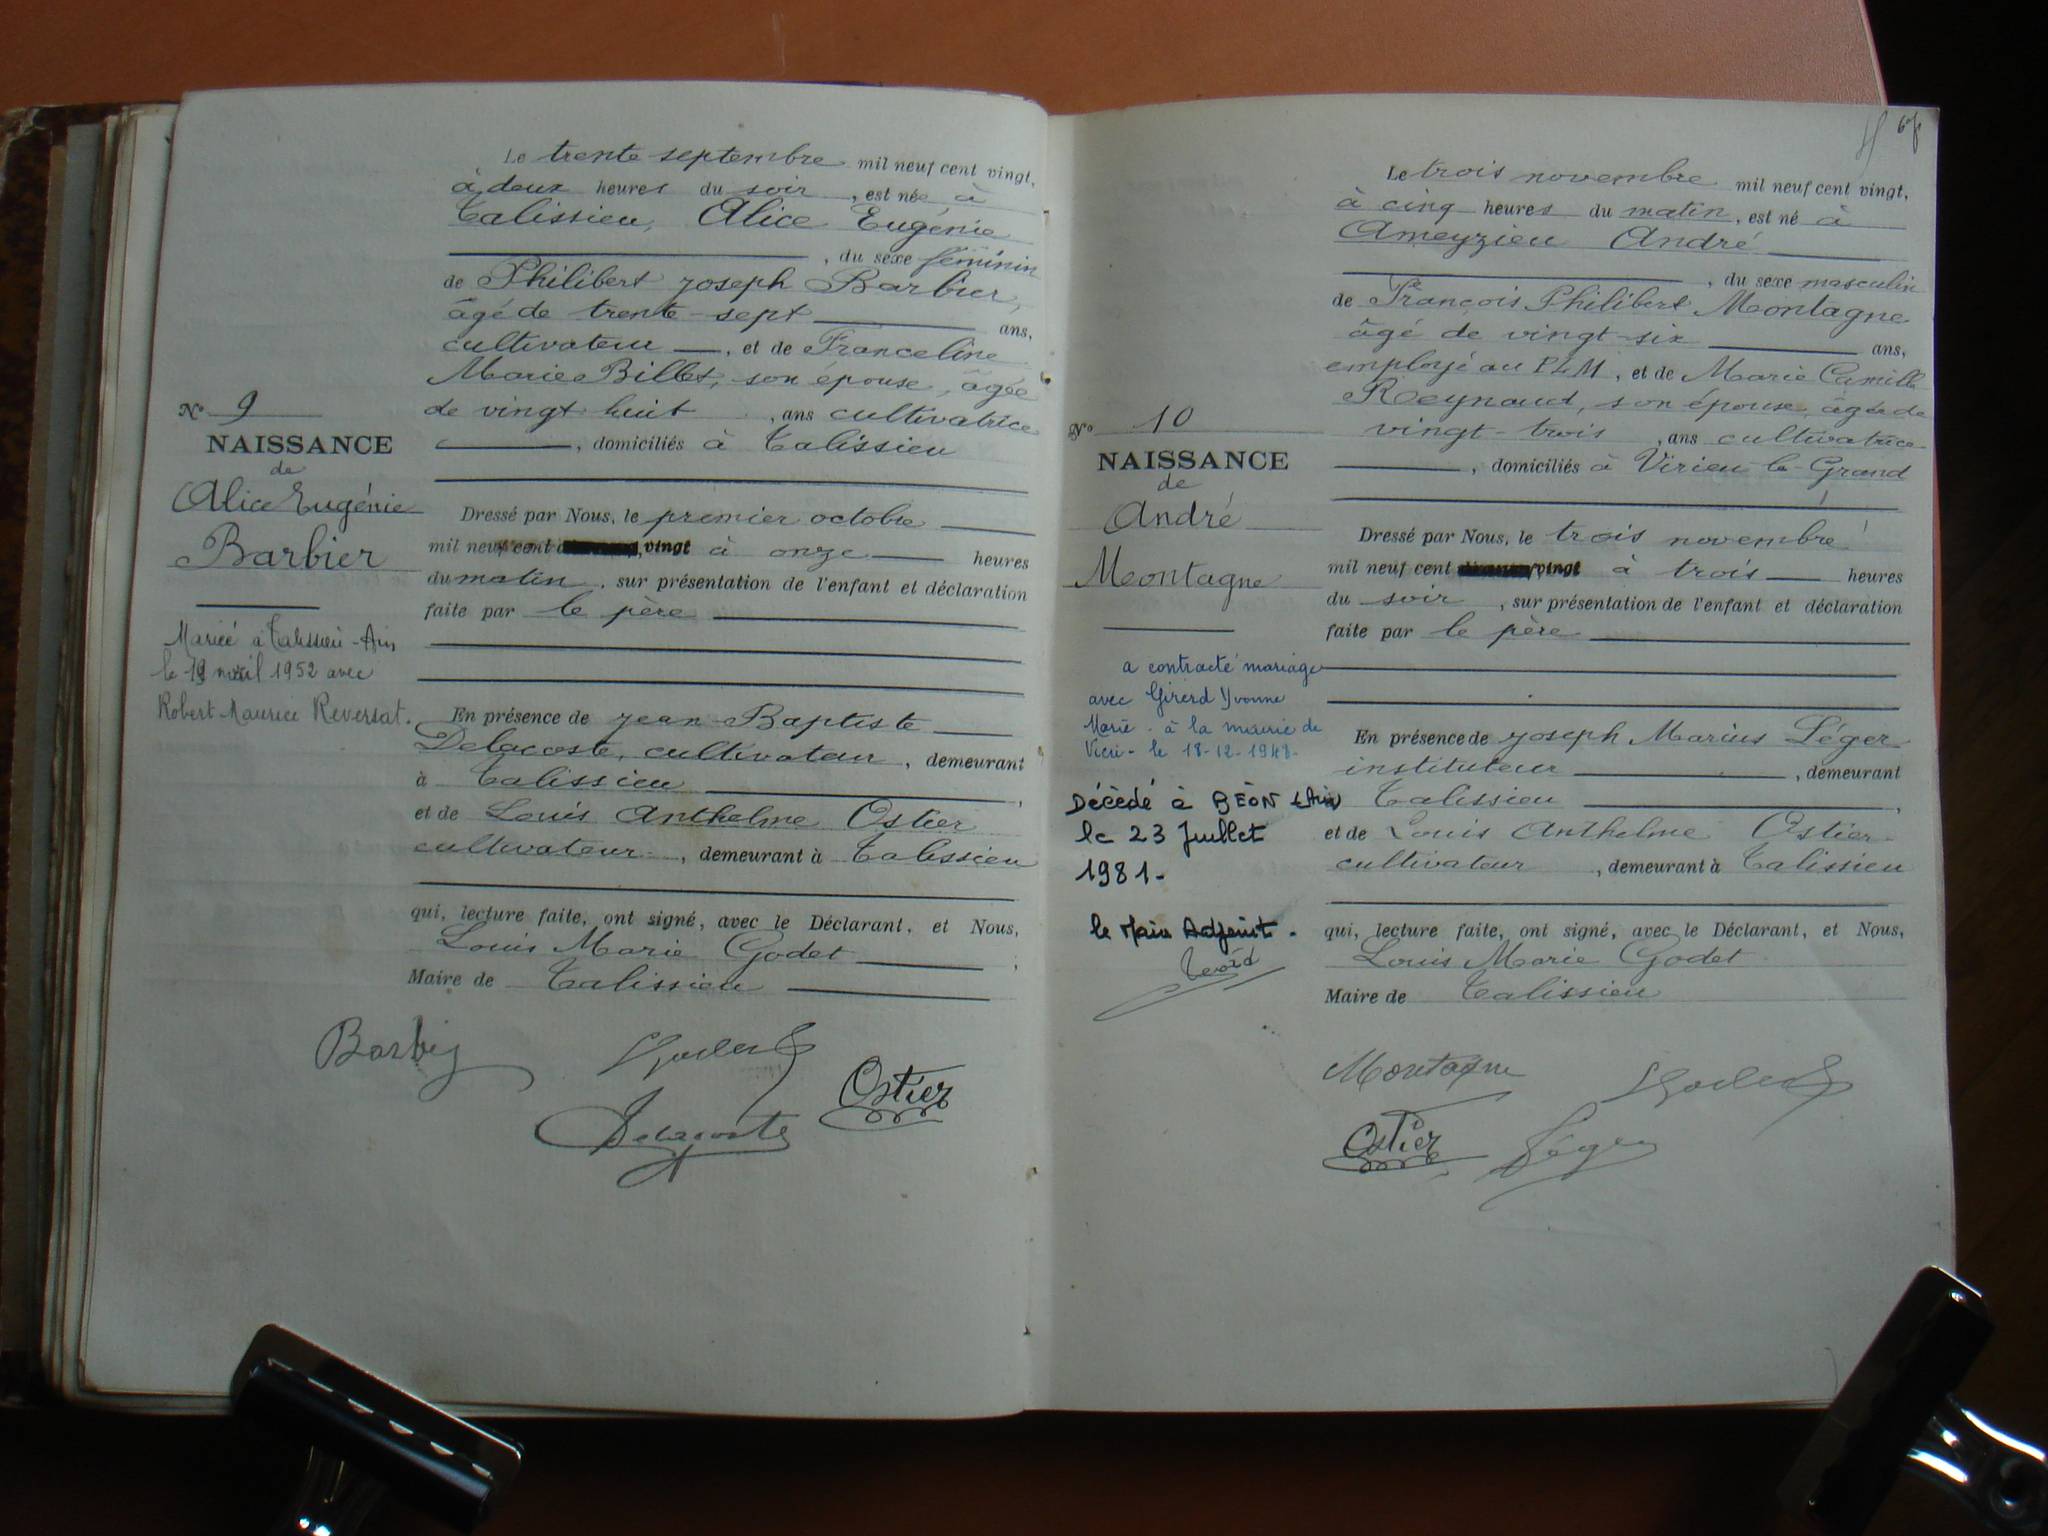 Le trente septembre mil neuf cent vingt,
à deux heures du soir, est née à
Talissieu, Alice Eugénie
, du sexe féminin
de Philibert Joseph Barbier,
âgé de trente-sept ans,
cultivateur, et de Franceline
Marie Billet, son épouse, âgée
de vingt huit, ans cultivatrice
, domiciliés à Talissieu
N° 9
NAISSANCE
de
Alice Eugénie
Barbier
Mariée à Talissieu-Ain
le 1952 avec
Robert Maurice Reversat.
Dressé par Nous, le premier octobre
mil neuf cent vingt à onze heures
du matin, sur présentation de l'enfant et déclaration
faite par le père
En présence de Jean-Baptiste
Delacoste, cultivateur, demeurant
à Talissieu,
et de Louis Anthelme Ostier
cultivateur, demeurant à Talissieu
qui, lecture faite, ont signé, avec le Déclarant, et Nous,
Louis Marie Godet,
Maire de Talissieu
Barbier
Godet
Ostier
Delacoste
Le trois novembre mil neuf cent vingt,
à cinq heures du matin, est né à
Ameyzieu André
, du sexe masculin
de François Philibert Montagne
âgé de vingt-six ans,
employé au PLM, et de Marie Camille
Reynaud, son épouse, âgée de
vingt-trois, ans cultivatrice
, domiciliés à Virieu-le-Grand
N° 10
NAISSANCE
de
André
Montagne
a contracté mariage
avec Girerd Yvonne
Marie - à la mairie de
le 18-12-1948-
Décèdé à BÈON (Ain)
le 23 Juillet
1981-
le Maire Adjoint.
Dressé par Nous, le trois novembre
mil neuf cent vingt à trois heures
du soir, sur présentation de l'enfant et déclaration
faite par le père
En présence de Joseph Marius Léger
instituteur, demeurant
Talissieu,
et de Louis Anthelme Ostier
cultivateur, demeurant à Talissieu
qui, lecture faite, ont signé, avec le Déclarant, et Nous,
Louis Marie Godet
Maire de Talissieu
Montagne
Godet
Ostier
Léger